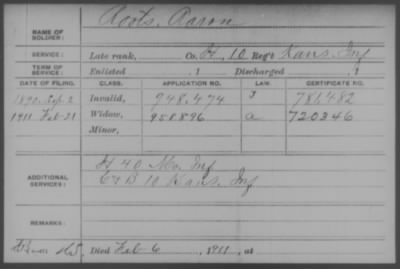 Roots, Aaron
NAME OF SOLDIER:
SERVICE: Late rank, Co. H, 10 Reg't Kans. Inf
TERM OF SERVICE: Enlisted , 1 Discharged , 1
DATE OF FILING. CLASS. APPLICATION NO. LAW. CERTIFICATE NO.
1890. Sep. 2 Invalid, 948.474 781482
1911 Feb-21 Widow, 958896 a 720346
Minor,
ADDITIONAL SERVICES: H 40 Mo. Inf
Co B 10 Kans. Inf
REMARKS:
Died Feb 6, 1911, at